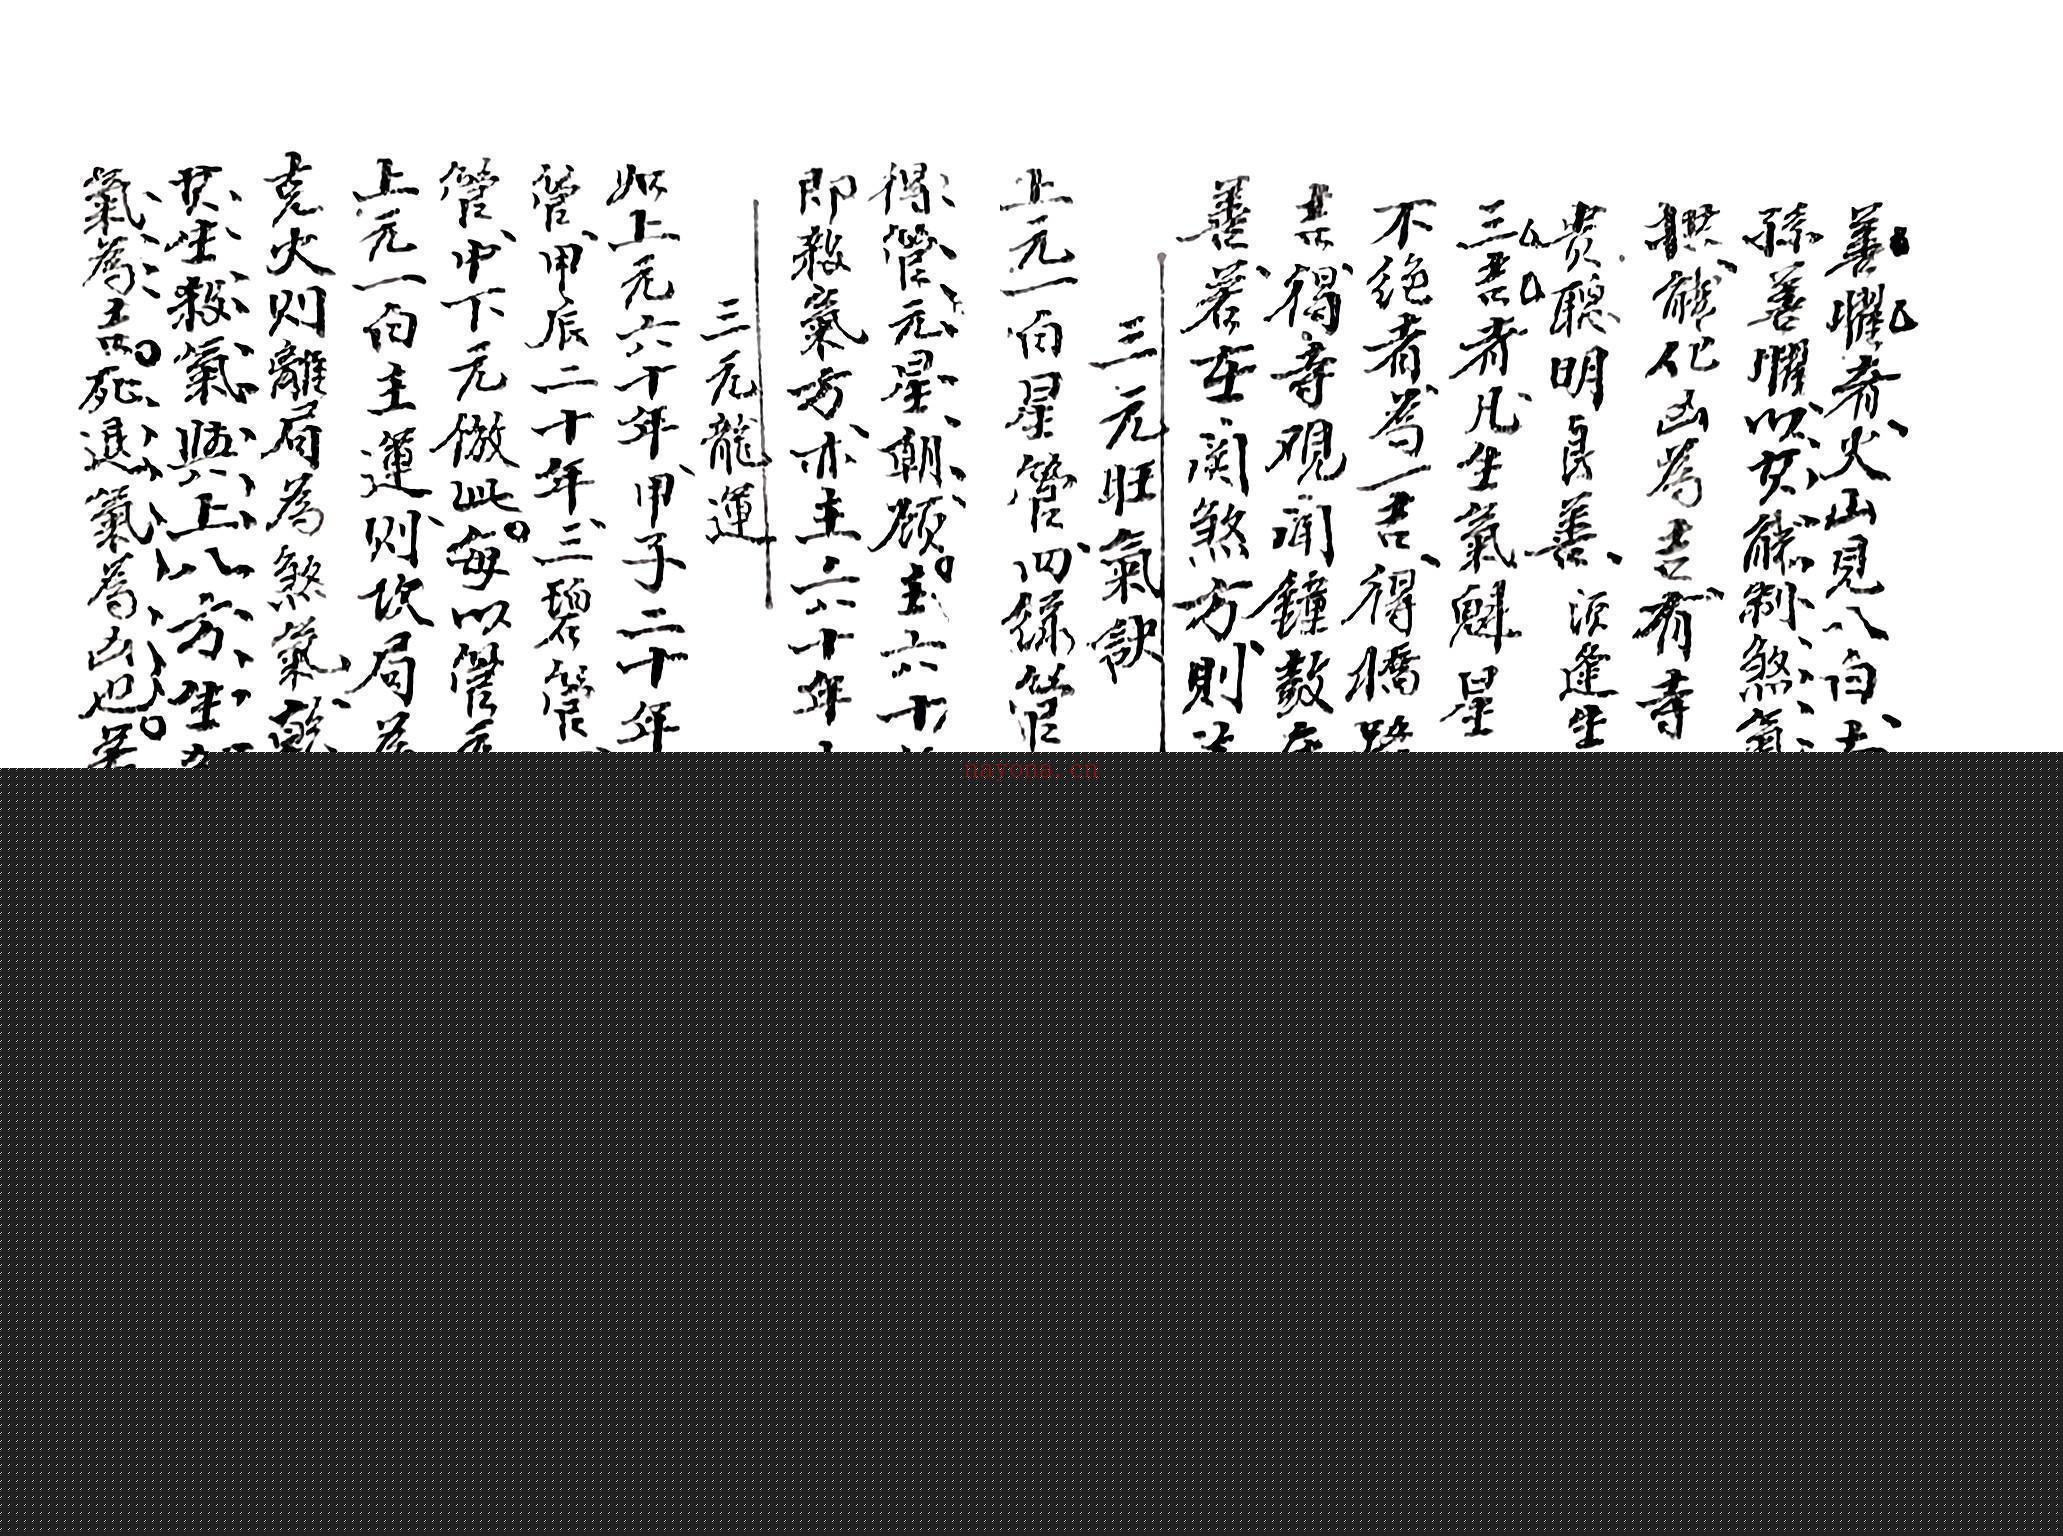 善曜者火山見八白
孫善曜以其能制煞氣
撰能化凶為吉有寺
貴聰明良善須逢生
三吉者凡生氣魁星
不絕者為一吉得橋路
吉得寺觀聞鐘鼓
善若在關煞方則
三元旺氣訣
上元一白星管四綠管
得管元星朝顧主六十
即殺氣方亦主六十年
三元龍運
如上元六十年甲子二十年
管甲辰二十年三碧管
管中下元倣此每以管元
上元一白主運則坎局為
克火則離局為煞氣乾
其生殺氣與上八方生
氣為吉死退氣為凶也若
nayona.cn